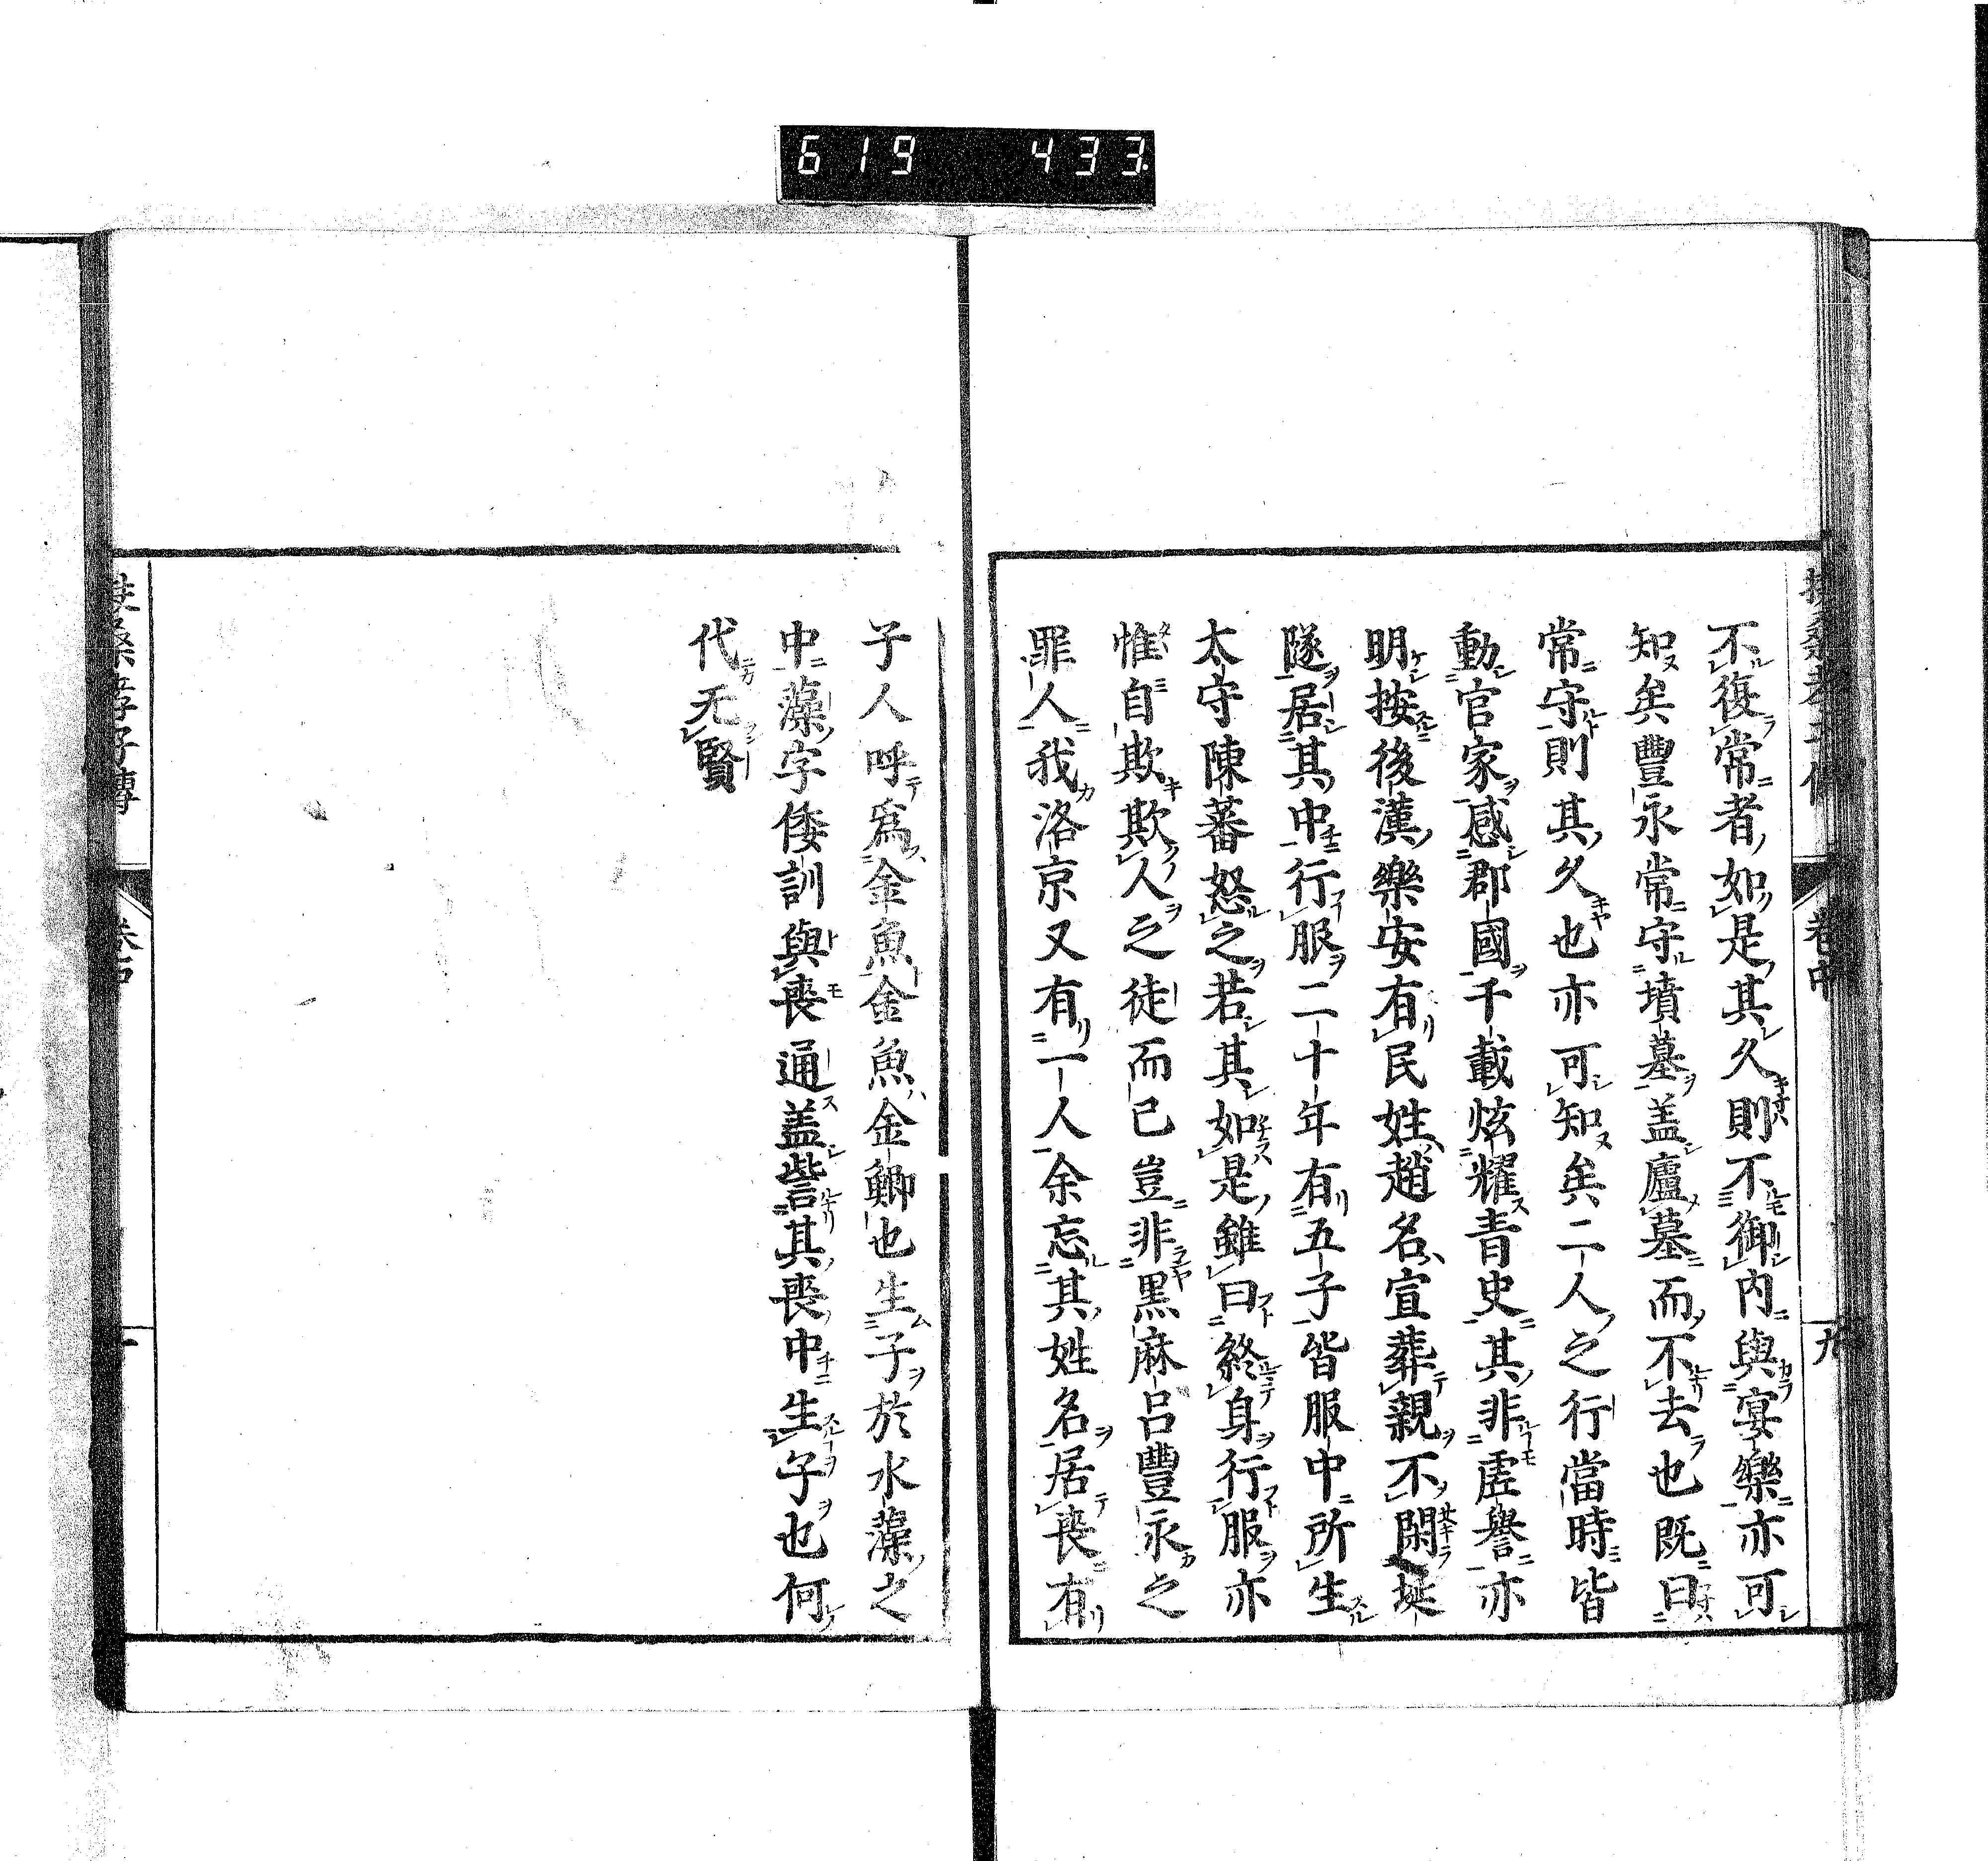 619 433
不復常者如是其久則不御内與宴樂亦可
知矣豐永常守墳墓盖廬墓而不去也既曰
常守則其久也亦可知矣二人之行當時皆
動官家感郡國千載炫耀青史其非虚譽亦
明按後漢樂安有民姓趙名宣葬親不閉埏
隧居其中行服二十年有五子皆服中所生
太守陳蕃怒之若其如是雖曰終身行服亦
惟自欺欺人之徒而已豈非黒麻呂豐永之
罪人我洛京又有一人余忘其姓名居喪有
子人呼爲金魚金魚金鯽也生子於水藻之
中藻字倭訓與喪通盖訾其喪中生子也何
代无賢
卷中
九
扶桑孝子傳